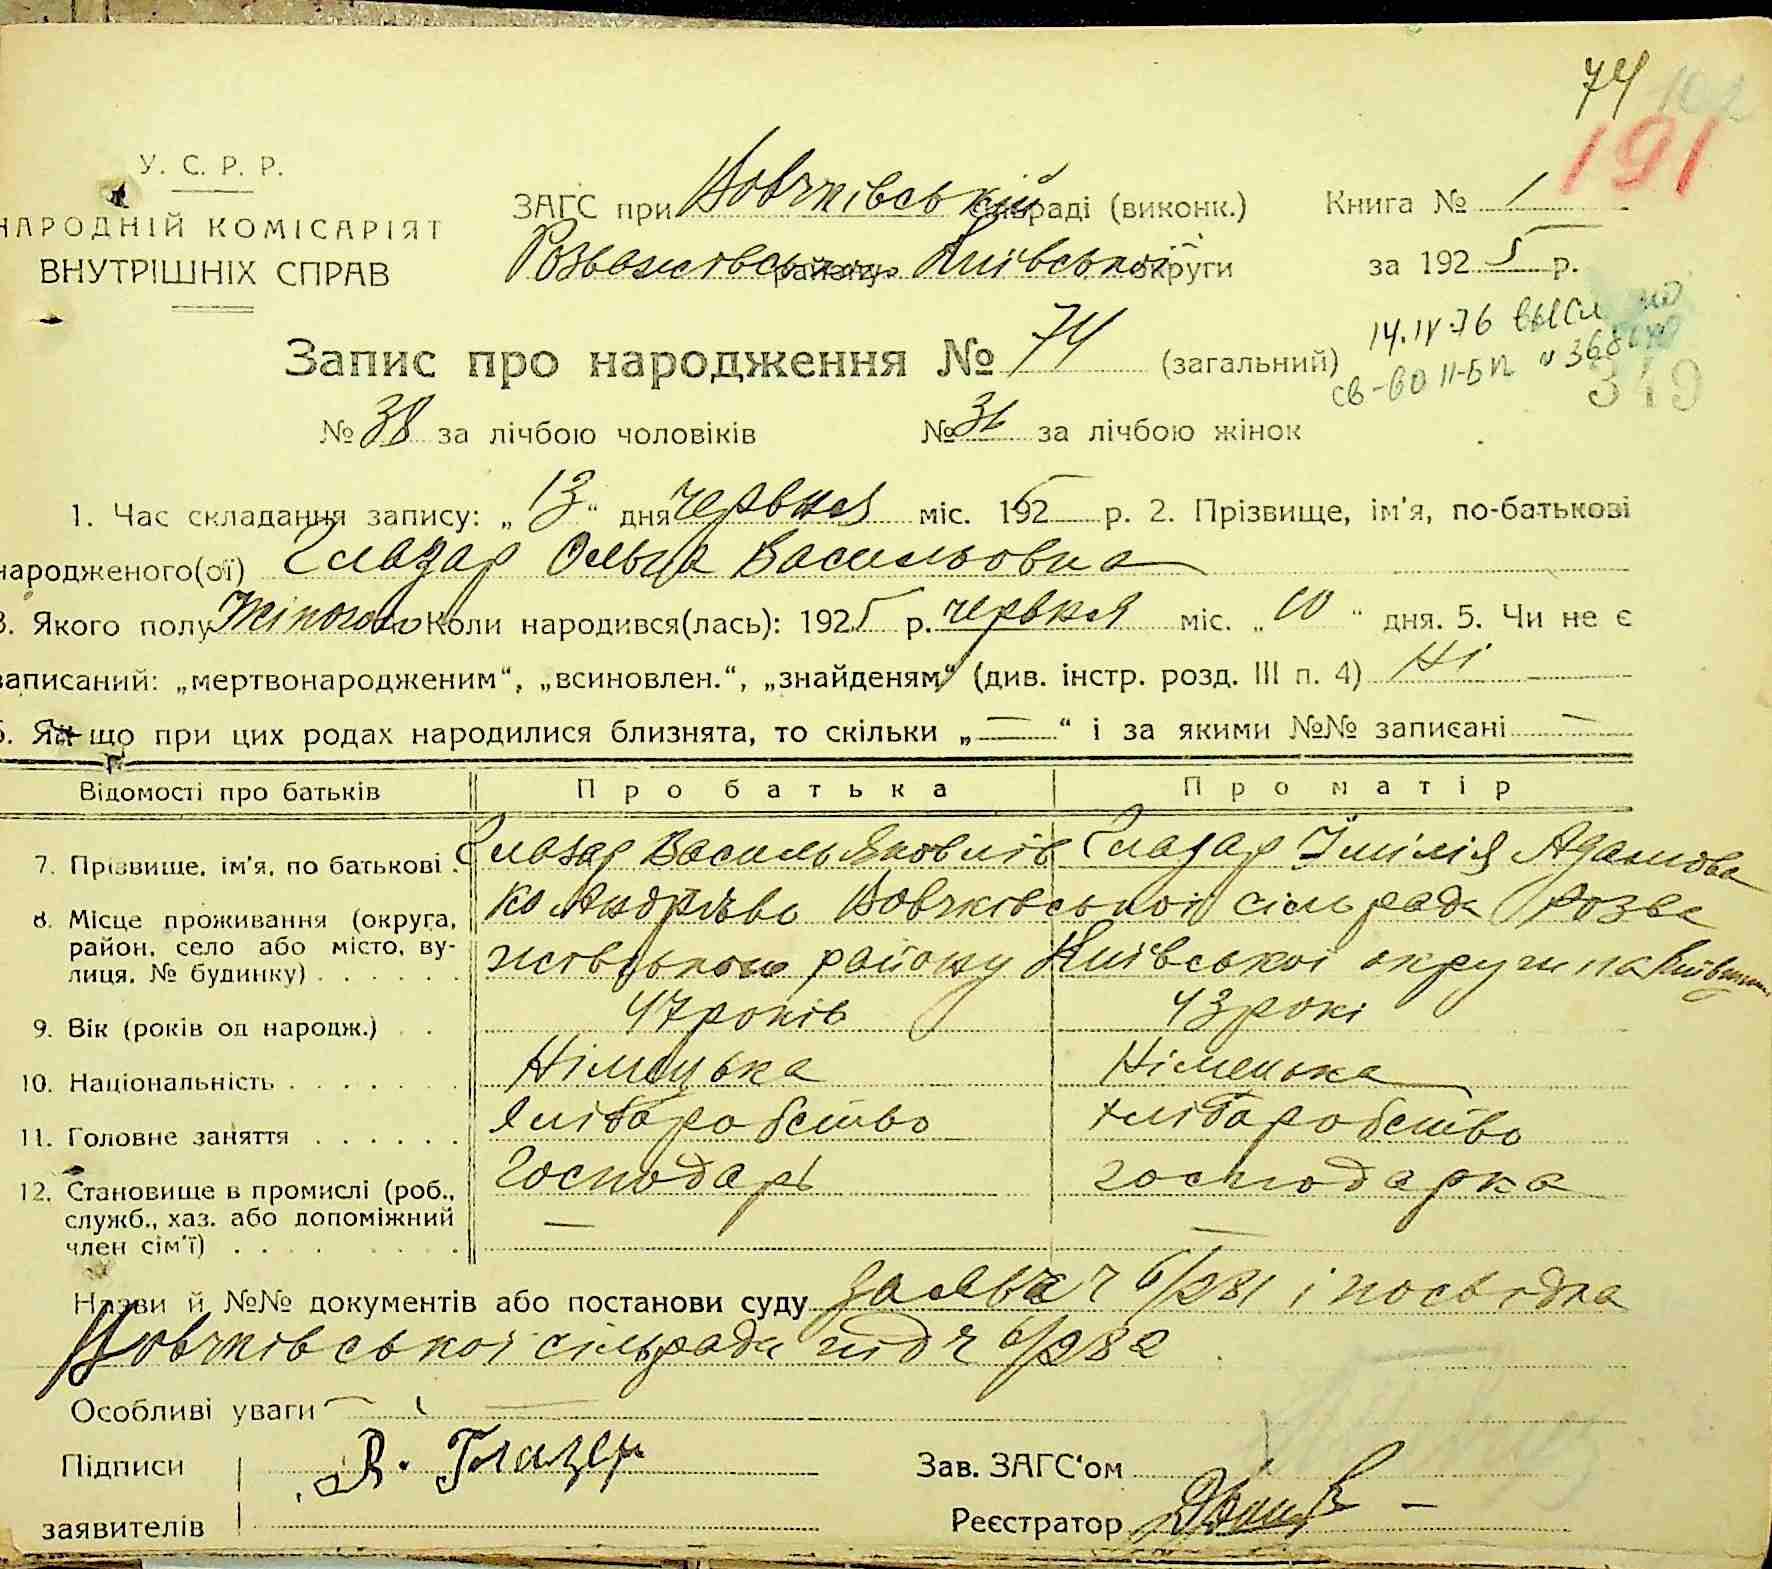 74
191
У. С. Р. Р.
НАРОДНІЙ КОМІСАРІЯТ
ВНУТРІШНІХ СПРАВ
ЗАГС при Вовчківській сільраді (виконк.)
Розважівського району Київської округи
Книга № 1
за 1925 р.
14.IV-76
св-во II-БК
349
Запис про народження № 74 (загальний)
№ 38 за лічбою чоловіків № 36 за лічбою жінок
1. Час складання запису: „13“ дня червня міс. 1925 р. 2. Прізвище, ім'я, по-батькові
народженого(ої) Глазар Ольга Васильовна
3. Якого полу Жіночого Коли народився(лась): 1925 р. червня міс. „10“ дня. 5. Чи не є
записаний: „мертвонародженим“, „всиновлен.“, „знайденям“ (див. інстр. розд. III п. 4) Ні
6. Якщо при цих родах народилися близнята, то скільки „—“ і за якими №№ записані —
Відомості про батьків Про батька Про матір
7. Прізвище, ім'я, по батькові. Глазар Василь Яковлів Глазар Імілія Адамова
8. Місце проживання (округа, район, село або місто, вулиця, № будинку) ко Андріївo Вовчківської сільради Розва
жівського району Київської округи на Київщині
9. Вік (років од народж.) 47 років 43 рокі
10. Національність Німецька Німецька
11. Головне заняття Хліборобство хліборобство
12. Становище в промислі (роб., служб., хаз. або допоміжний член сім'ї) Господарь господарка
— —
Назви й №№ документів або постанови суду заявка ч 6/281 і посвідка
Вовчківської сільради під ч 6/282
Особливі уваги —
Підписи В. Глазер
заявителів
Зав. ЗАГС'ом
Реєстратор